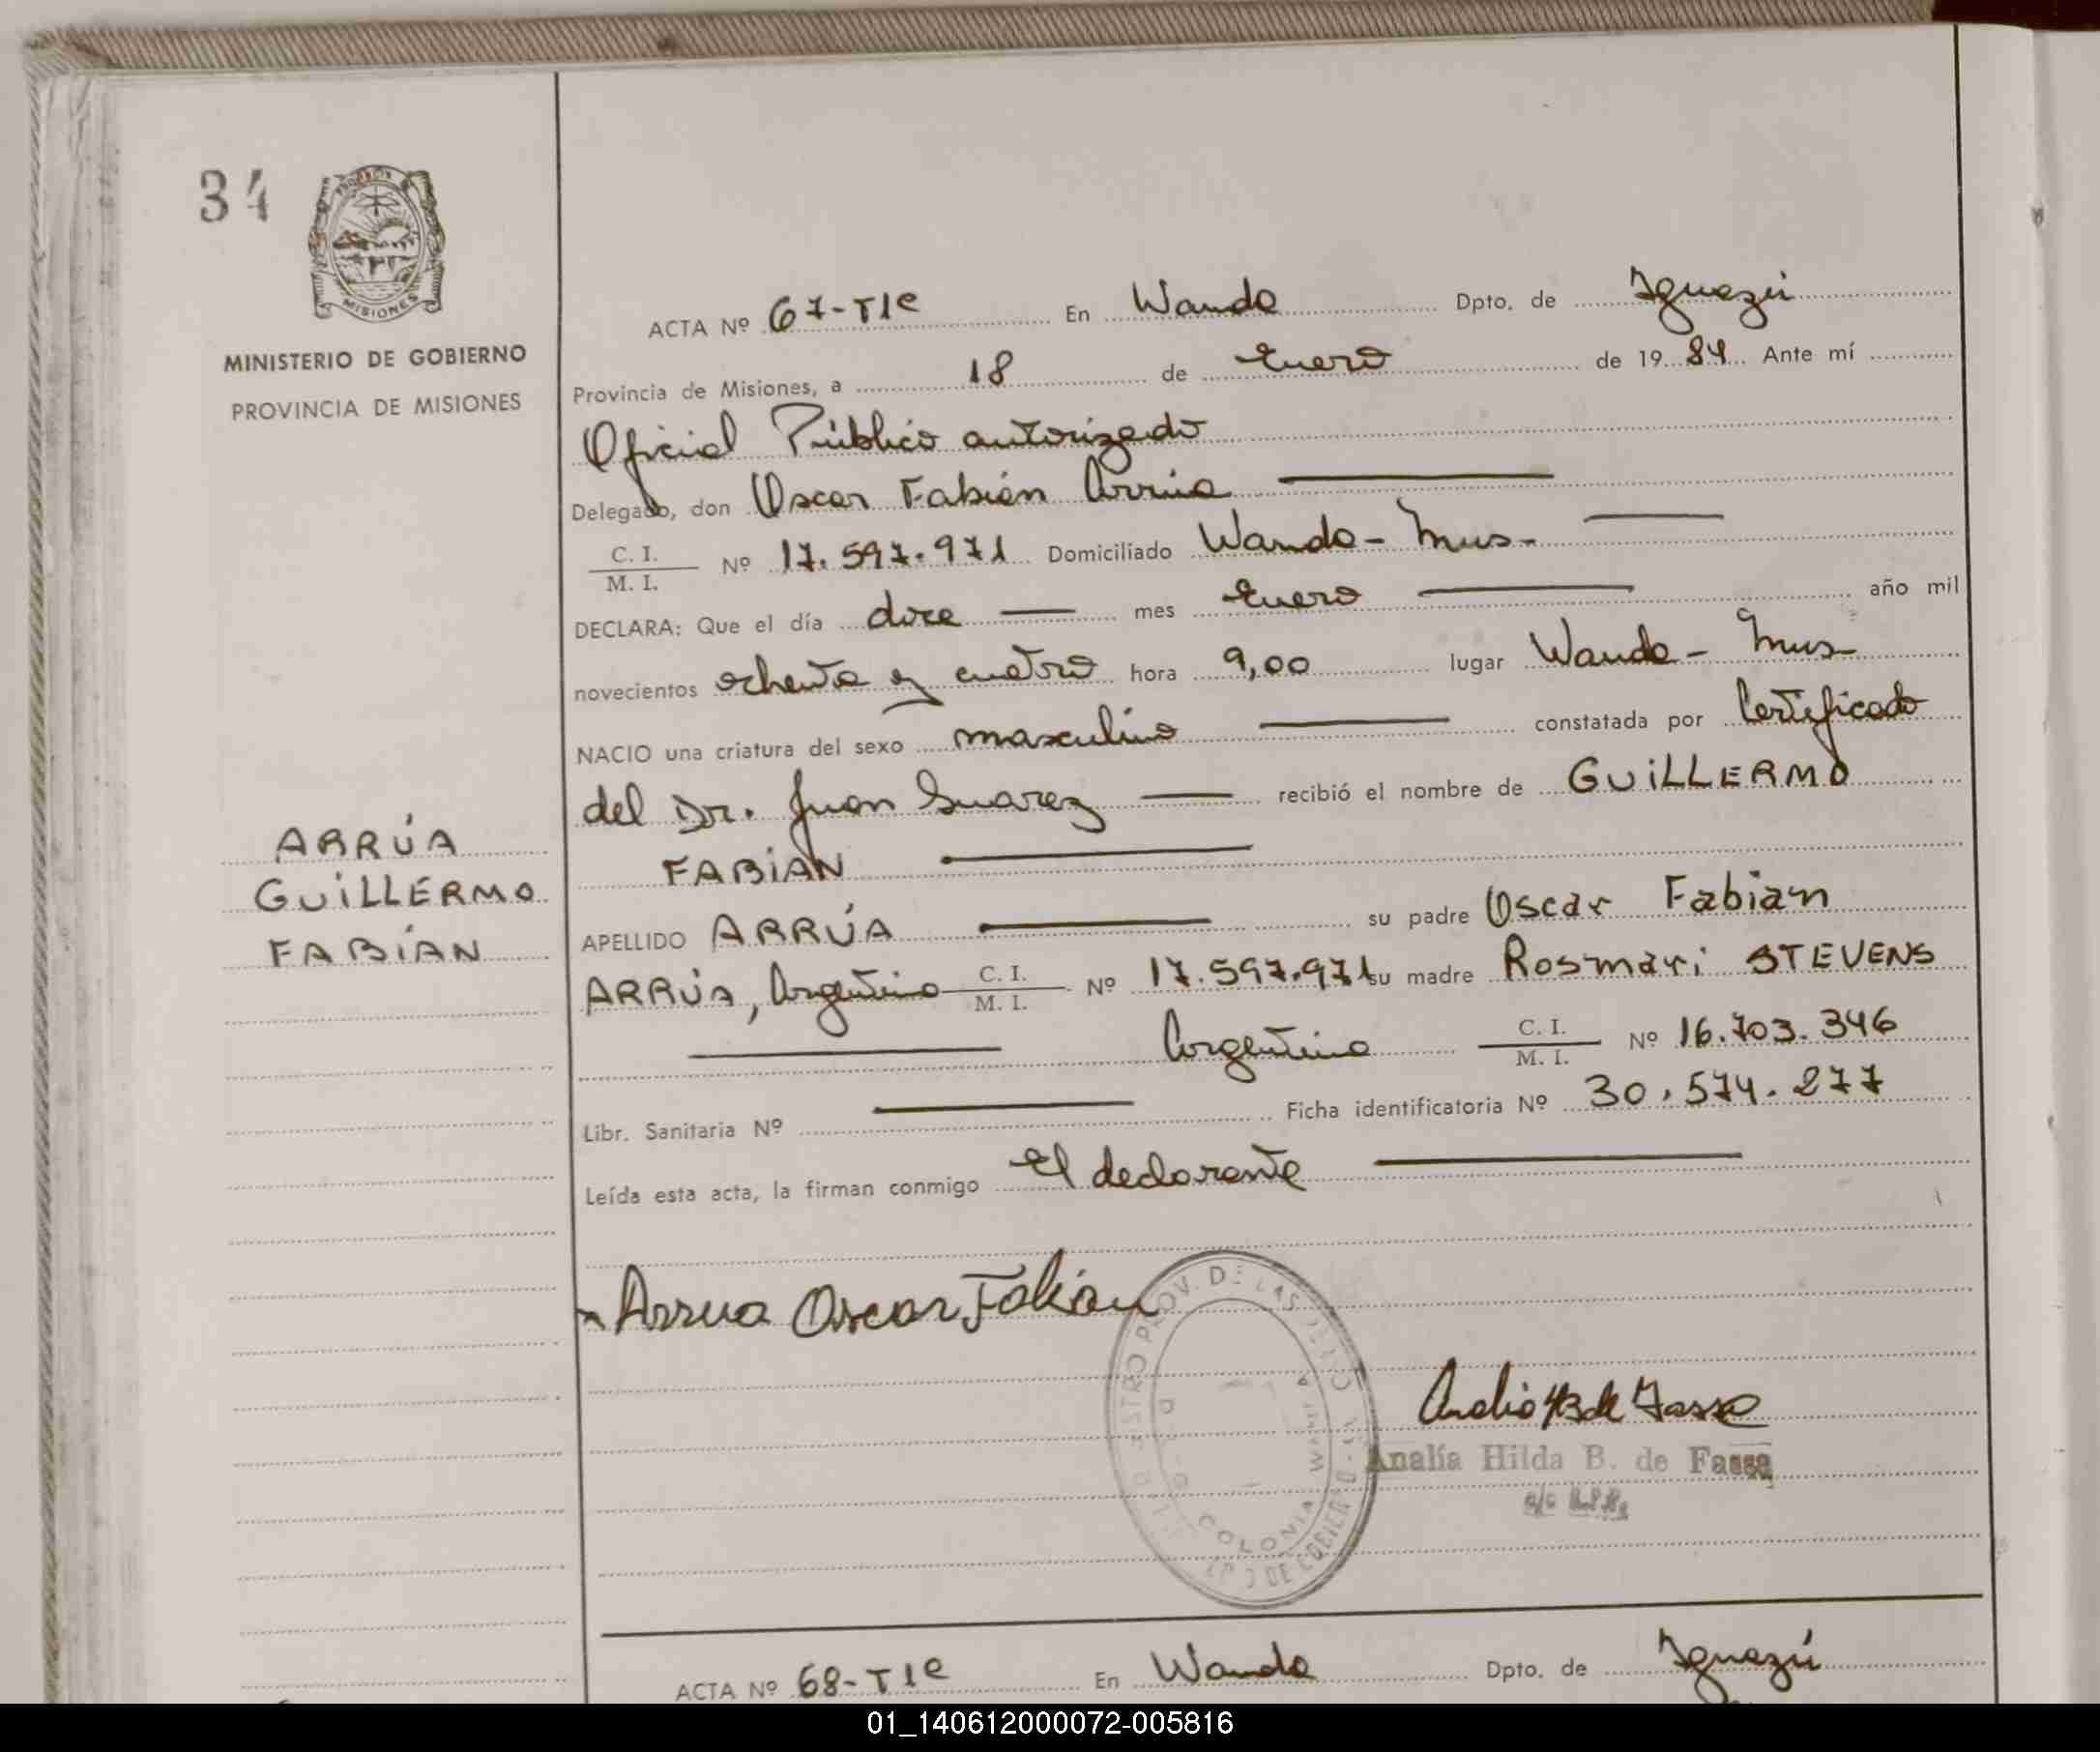 34
MISIONES
MINISTERIO DE GOBIERNO
PROVINCIA DE MISIONES
ARRÚA
GUILLERMO
FABÍAN
ACTA Nº 67-T1º En Wanda Dpto. de Iguazú
Provincia de Misiones, a 18 de Enero de 1984 Ante mí
Oficial Público autorizado
Delegado, don Oscar Fabián Arrúa
C. I. / M. I. Nº 17.597.971 Domiciliado Wanda - Mnes.
DECLARA: Que el día doce mes Enero año mil
novecientos ochenta y cuatro hora 9,00 lugar Wanda - Mnes
NACIO una criatura del sexo masculino constatada por Certificado
del Dr. Juan Suarez recibió el nombre de GUILLERMO
FABIÁN
APELLIDO ARRÚA su padre Oscar Fabian
ARRÚA, Argentino C. I. / M. I. Nº 17.597.971 su madre Rosmari STEVENS
Argentina C. I. / M. I. Nº 16.703.346
Libr. Sanitaria Nº Ficha identificatoria Nº 30.574.277
Leída esta acta, la firman conmigo El declarante
Arrua Oscar Fabian
PROV. DE LAS
COLONIA WANDA
Analía HB de Fassa
Analía Hilda B. de Fassa
ACTA Nº 68-T1º En Wanda Dpto. de Iguazú
01_140612000072-005816